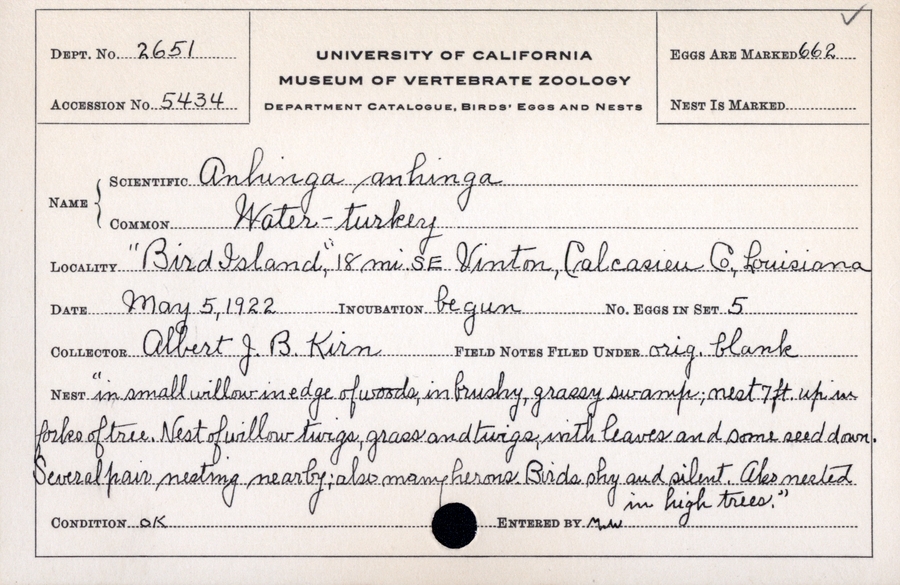 Dept. No. 2651
Accession No. 5434
UNIVERSITY OF CALIFORNIA
MUSEUM OF VERTEBRATE ZOOLOGY
Department Catalogue, Birds' Eggs and Nests
Eggs Are Marked 662
Nest Is Marked
Name { Scientific Anhinga anhinga
Common Water-turkey
Locality "Bird Island," 18 mi. SE Vinton, Calcasieu Co., Louisiana
Date May 5, 1922 Incubation begun No. Eggs in Set 5
Collector Albert J. B. Kirn Field Notes Filed Under orig. blank
Nest "in small willow in edge of woods, in brushy, grassy swamp; nest 7 ft. up in
forks of tree. Nest of willow twigs, grass and twigs, with leaves and some seed down.
Several pair nesting nearby; also many herons. Birds shy and silent. Also nested
in high trees."
Condition OK Entered by